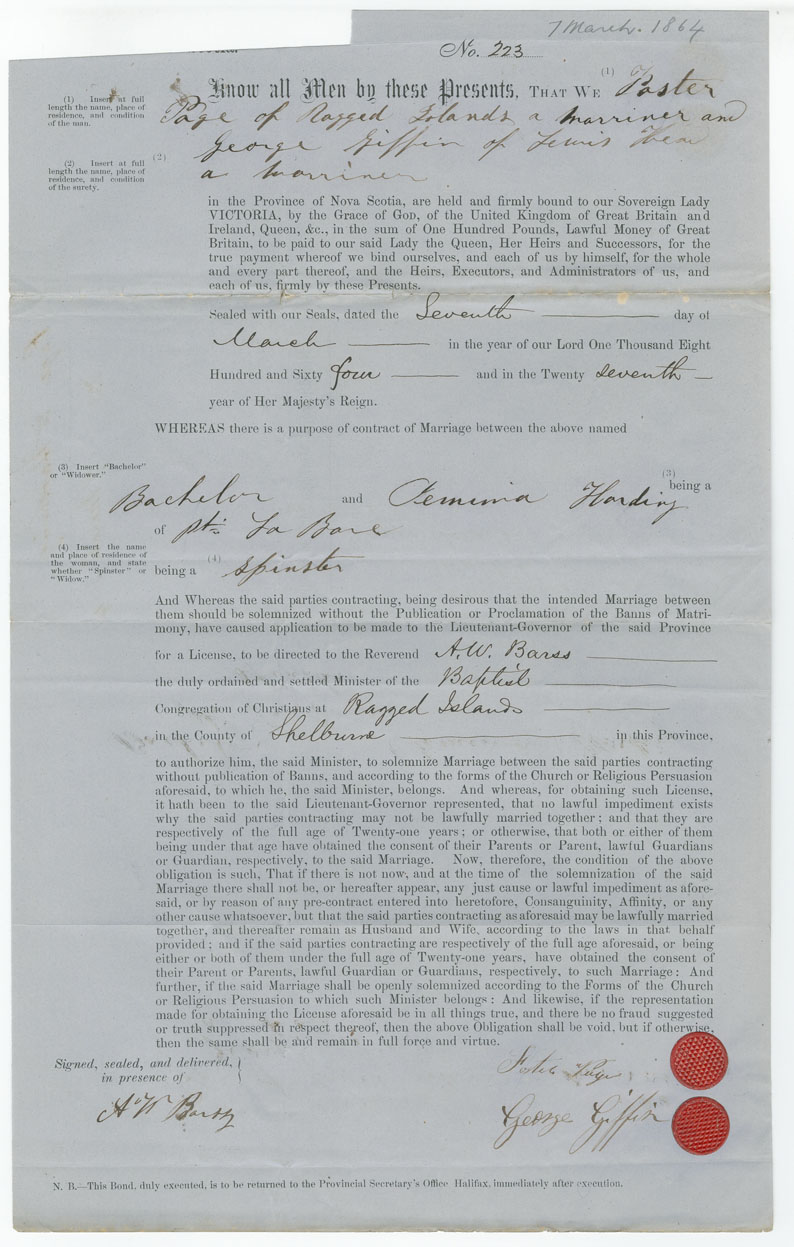 7 March. 1864
No. 223
Know all Men by these Presents, THAT WE (1) Foster
(1) Insert at full
length the name, place of
residence, and condition
of the man.
Page of Ragged Islands a Marriner and
(2) George Giffin of Lewis Head
a Marriner
(2) Insert at full
length the name, place of
residence, and condition
of the surety.
in the Province of Nova Scotia, are held and firmly bound to our Sovereign Lady
VICTORIA, by the Grace of GOD, of the United Kingdom of Great Britain and
Ireland, Queen, &c., in the sum of One Hundred Pounds, Lawful Money of Great
Britain, to be paid to our said Lady the Queen, Her Heirs and Successors, for the
true payment whereof we bind ourselves, and each of us by himself, for the whole
and every part thereof, and the Heirs, Executors, and Administrators of us, and
each of us, firmly by these Presents.
Sealed with our Seals, dated the Seventh day of
March in the year of our Lord One Thousand Eight
Hundred and Sixty four and in the Twenty seventh
year of Her Majesty's Reign.
WHEREAS there is a purpose of contract of Marriage between the above named
(3) Insert "Bachelor"
or "Widower."
(3)
being a
Bachelor and Jemima Harding
of Pt. La Bare
(4) Insert the name
and place of residence of
the woman, and state
whether "Spinster" or
"Widow."
being a (4) Spinster
And Whereas the said parties contracting, being desirous that the intended Marriage between
them should be solemnized without the Publication or Proclamation of the Banns of Matri-
mony, have caused application to be made to the Lieutenant-Governor of the said Province
for a License, to be directed to the Reverend A. W. Barss
the duly ordained and settled Minister of the Baptist
Congregation of Christians at Ragged Islands
in the County of Shelburne in this Province,
to authorize him, the said Minister, to solemnize Marriage between the said parties contracting
without publication of Banns, and according to the forms of the Church or Religious Persuasion
aforesaid, to which he, the said Minister, belongs. And whereas, for obtaining such License,
it hath been to the said Lieutenant-Governor represented, that no lawful impediment exists
why the said parties contracting may not be lawfully married together; and that they are
respectively of the full age of Twenty-one years; or otherwise, that both or either of them
being under that age have obtained the consent of their Parents or Parent, lawful Guardians
or Guardian, respectively, to the said Marriage. Now, therefore, the condition of the above
obligation is such, That if there is not now, and at the time of the solemnization of the said
Marriage there shall not be, or hereafter appear, any just cause or lawful impediment as afore-
said, or by reason of any pre-contract entered into heretofore, Consanguinity, Affinity, or any
other cause whatsoever, but that the said parties contracting as aforesaid may be lawfully married
together, and thereafter remain as Husband and Wife, according to the laws in that behalf
provided; and if the said parties contracting are respectively of the full age aforesaid, or being
either or both of them under the full age of Twenty-one years, have obtained the consent of
their Parent or Parents, lawful Guardian or Guardians, respectively, to such Marriage: And
further, if the said Marriage shall be openly solemnized according to the Forms of the Church
or Religious Persuasion to which such Minister belongs: And likewise, if the representation
made for obtaining the License aforesaid be in all things true, and there be no fraud suggested
or truth suppressed in respect thereof, then the above Obligation shall be void, but if otherwise,
then the same shall be and remain in full force and virtue.
Signed, sealed, and delivered,
in presence of
Foster Page
A W Barss
George Giffin
N. B.—This Bond, duly executed, is to be returned to the Provincial Secretary's Office Halifax, immediately after execution.